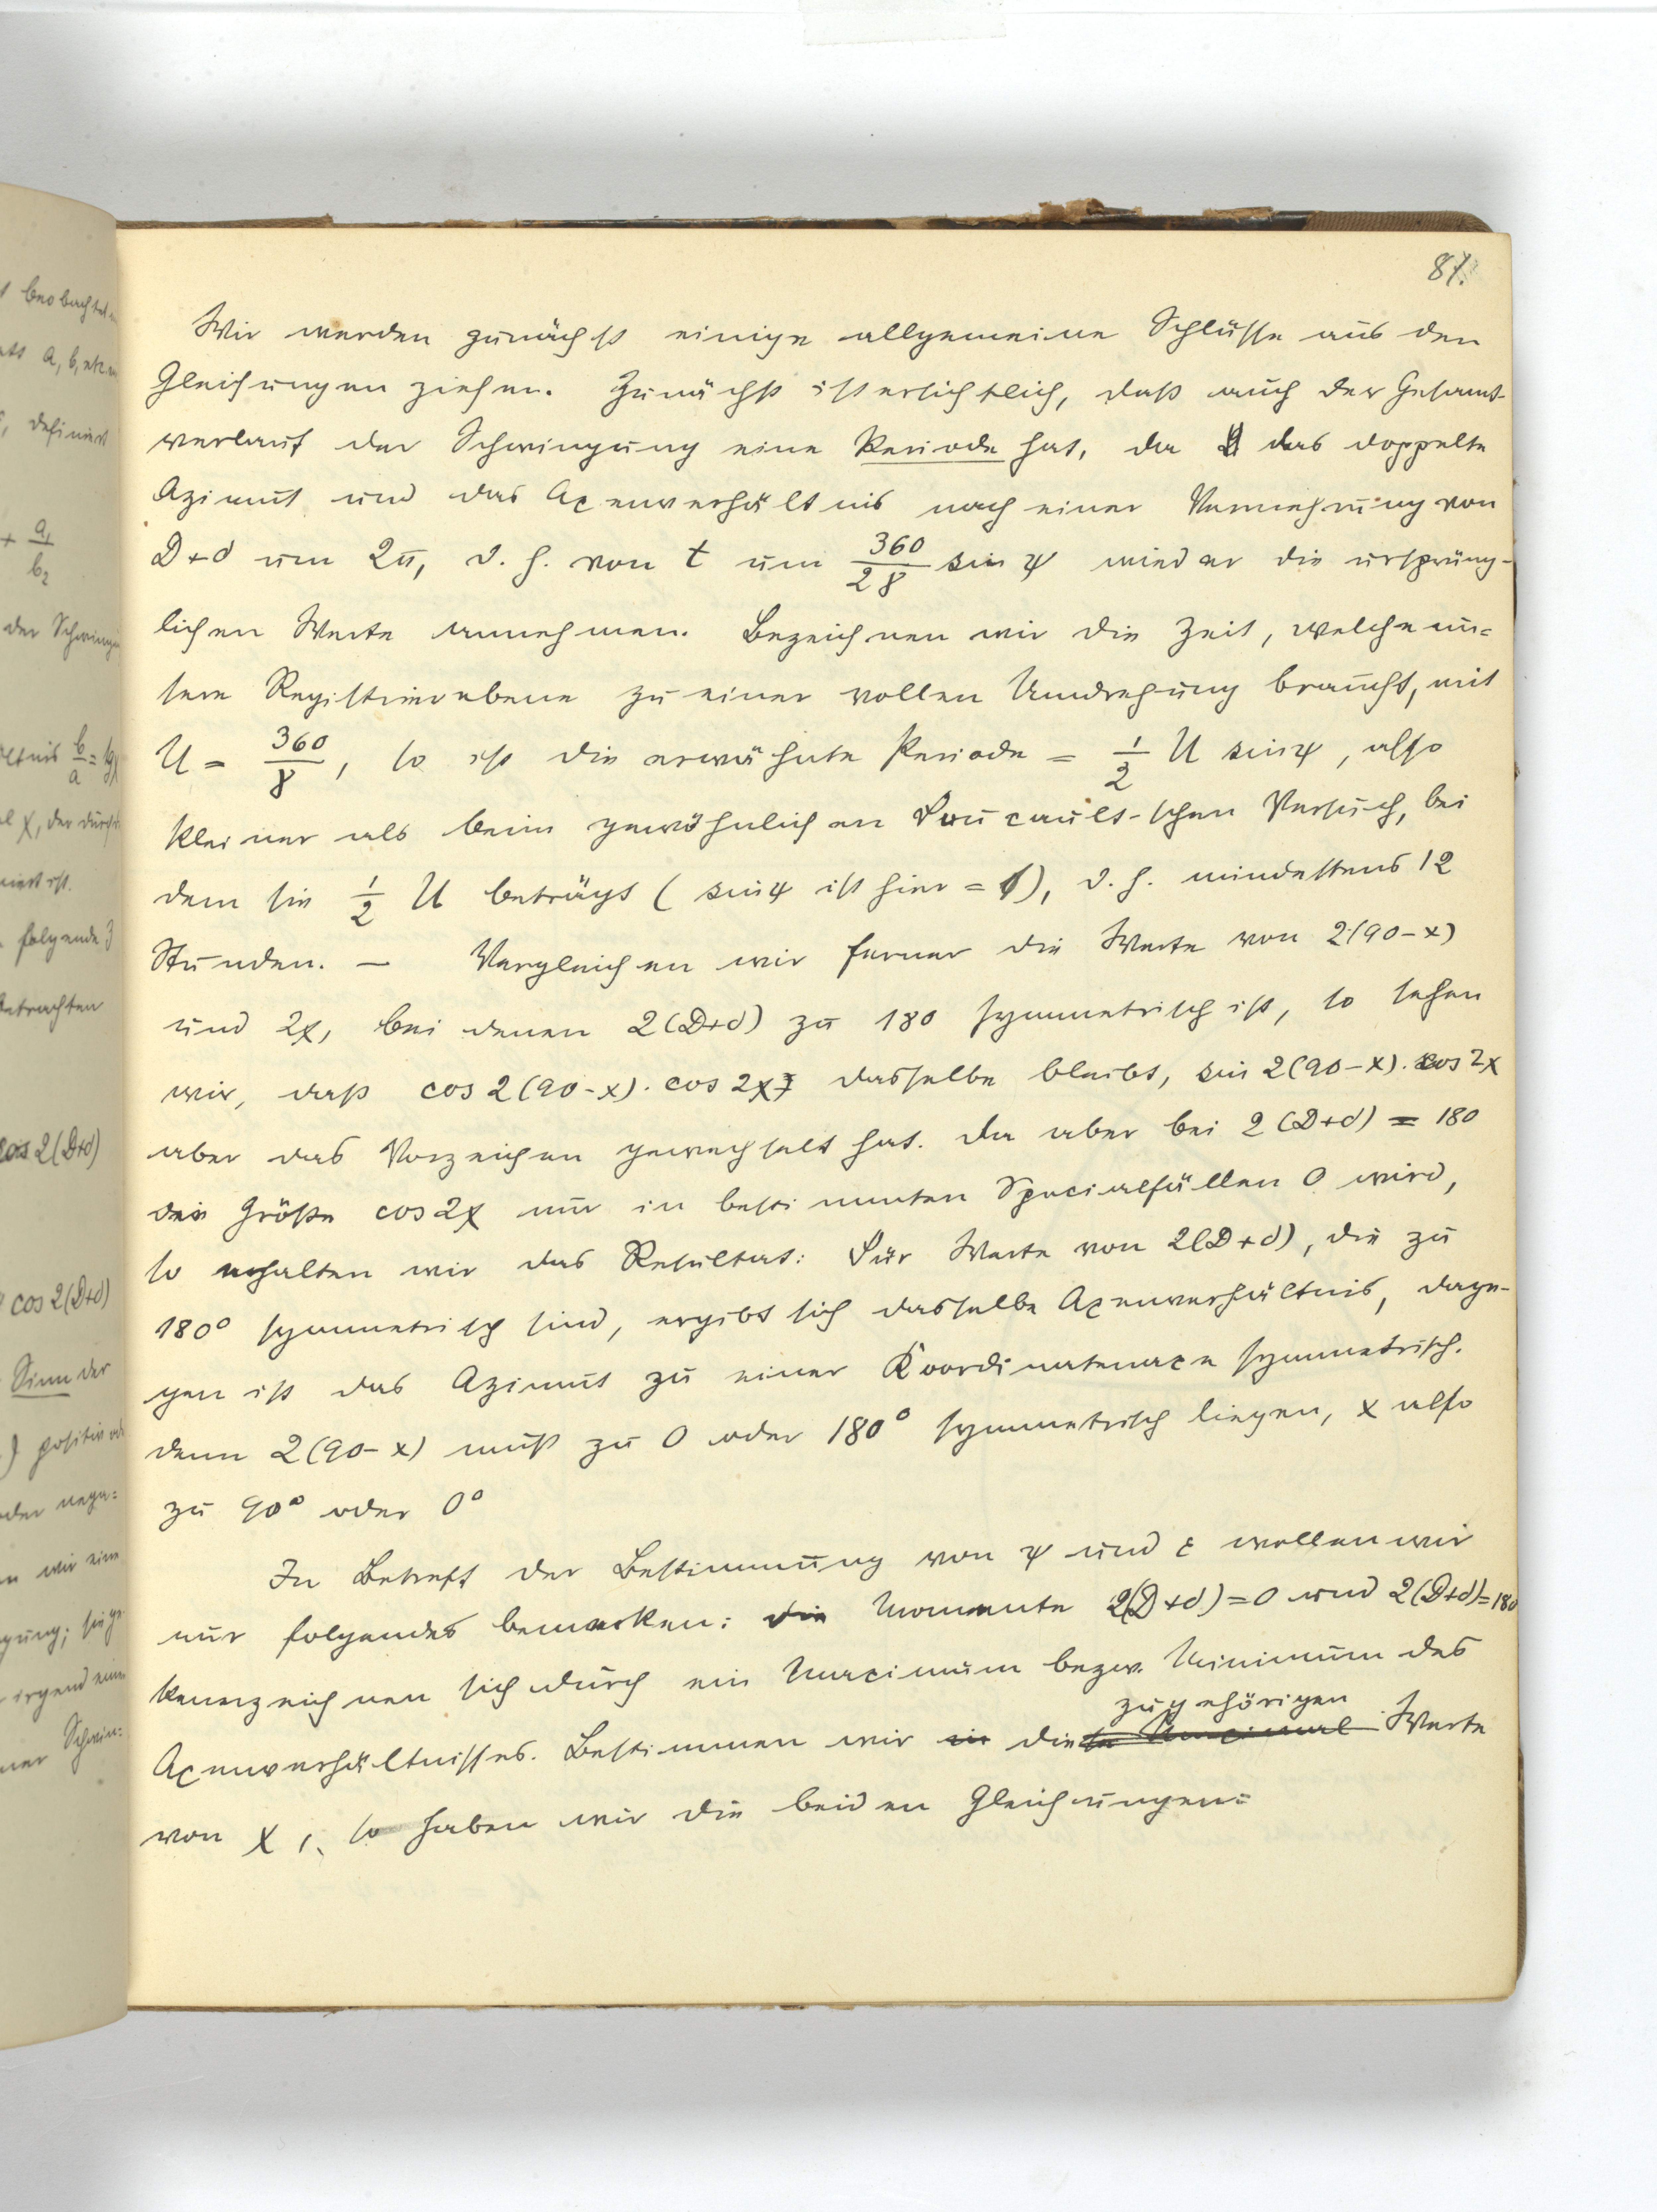 87.
Wir werden zunächst einige allgemeine Schlüsse aus den
Gleichungen ziehen. Zunächst ist ersichtlich, daß auch der Gesamt-
verlauf der Schwingung eine Periode hat, da das doppelte
Azimut und das Axenverhältnis nach einer Vermehrung von
D+d um 2π, d. h. von t um 360/2γ sin ψ wieder die ursprüng-
lichen Werte annehmen. Bezeichnen wir die Zeit, welche un=
sere Registrierebene zu einer vollen Umdrehung braucht, mit
U = 360/γ, so ist die erwähnte Periode = 1/2 U sin ψ, also
kleiner als beim gewöhnlichen Foucault-schen Versuch, bei
dem sie 1/2 U beträgt (sin ψ ist hier = 1), d. h. mindestens 12
Stunden. — Vergleichen wir ferner die Werte von 2(90-x)
und 2χ, bei denen 2(D+d) zu 180 symmetrisch ist, so sehen
wir, daß cos 2(90-x). cos 2χ dasselbe bleibt, sin 2(90-x). cos 2χ
aber das Vorzeichen gewechselt hat. Da aber bei 2(D+d) = 180
die Größe cos 2χ nur in bestimmten Specialfällen 0 wird,
so erhalten wir das Resultat: Für Werte von 2(D+d), die zu
180° symmetrisch sind, ergibt sich dasselbe Axenverhältnis, dage-
gen ist das Azimut zu einer Koordinatenaxe symmetrisch.
denn 2(90-x) muß zu 0 oder 180° symmetrisch liegen, x also
zu 90° oder 0°
In Betreff der Bestimmung von ψ und ε wollen wir
nur folgendes bemerken: die Momente 2(D+d)=0 und 2(D+d)=180
kennzeichnen sich durch ein Maximum bezw. Minimum des
zugehörigen
Axenverhältnisses. Bestimmen wir die Werte
von χ, so haben wir die beiden Gleichungen: